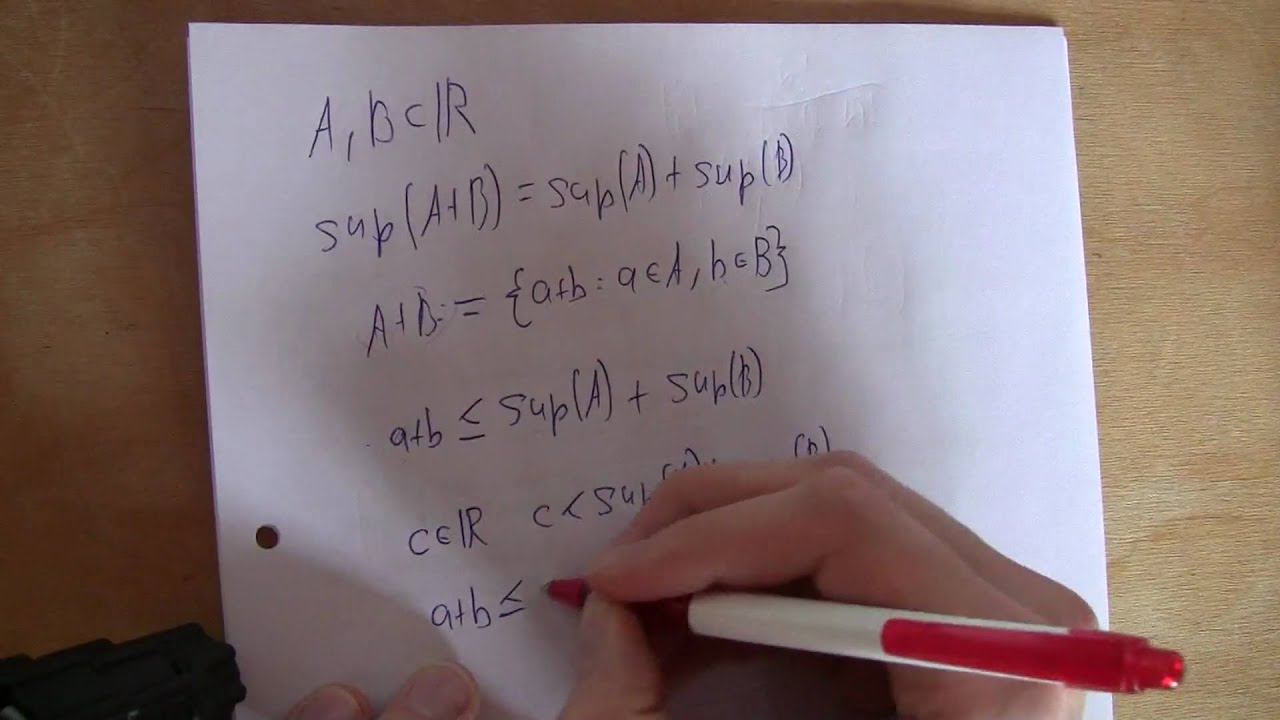 A, B ⊂ ℝ
sup(A+B) = sup(A) + sup(B)
A+B := {a+b : a ∈ A, b ∈ B}
a+b ≤ sup(A) + sup(B)
c ∈ ℝ c < sup
a+b ≤